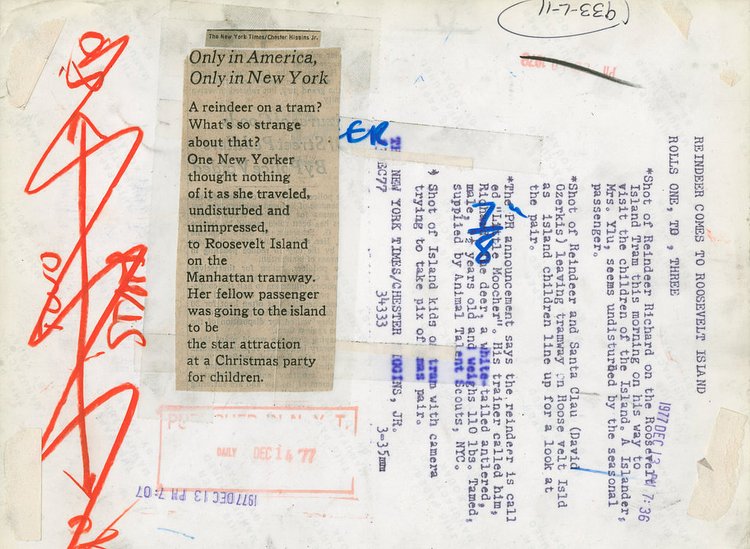 The New York Times/Chester Higgins Jr.
Only in America,
Only in New York
A reindeer on a tram?
What's so strange
about that?
One New Yorker
thought nothing
of it as she traveled,
undisturbed and
unimpressed,
to Roosevelt Island
on the
Manhattan tramway.
Her fellow passenger
was going to the island
to be
the star attraction
at a Christmas party
for children.
REINDEER COMES TO ROOSEVELT ISLAND
ROLLS ONE, TO , THREE
*Shot of Reindeer Richard on the Roosevelt
Island Tram this morning on his way to
visit the children of the Island. A Islander,
Mrs. Ylu, seems undisturbed by the seasonal
passenger.
*Shot of Reindeer and Santa Clau (David
Ozerkis) leaving tramway on Roose velt Isld
as island children line up for a look at
the pair.
*The PR announcement says the reindeer is call
ed "Little Moocher". His trainer called him,
Richard. The deer, a white-tailed antlered,
male, years old and weighs 110 lbs. Tamed,
supplied by Animal Talent Scouts, NYC.
* Shot of Island kids on tram with camera
trying to take pix of mas pair.
THE NEW YORK TIMES/CHESTER HIGGINS, JR.
DEC77 34333 3-35mm
1977 DEC 13 PM 7:36
1977 DEC 13 PM 7:07
PUBLISHED IN N.Y.T.
DAILY DEC 14 '77
933-L-11
ER